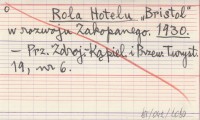 Rola Hotelu „Bristol"
w rozwoju Zakopanego. 1930.
— Prz. Zdroj.-Kąpiel. i Przew. Turyst.
19, nr 6.